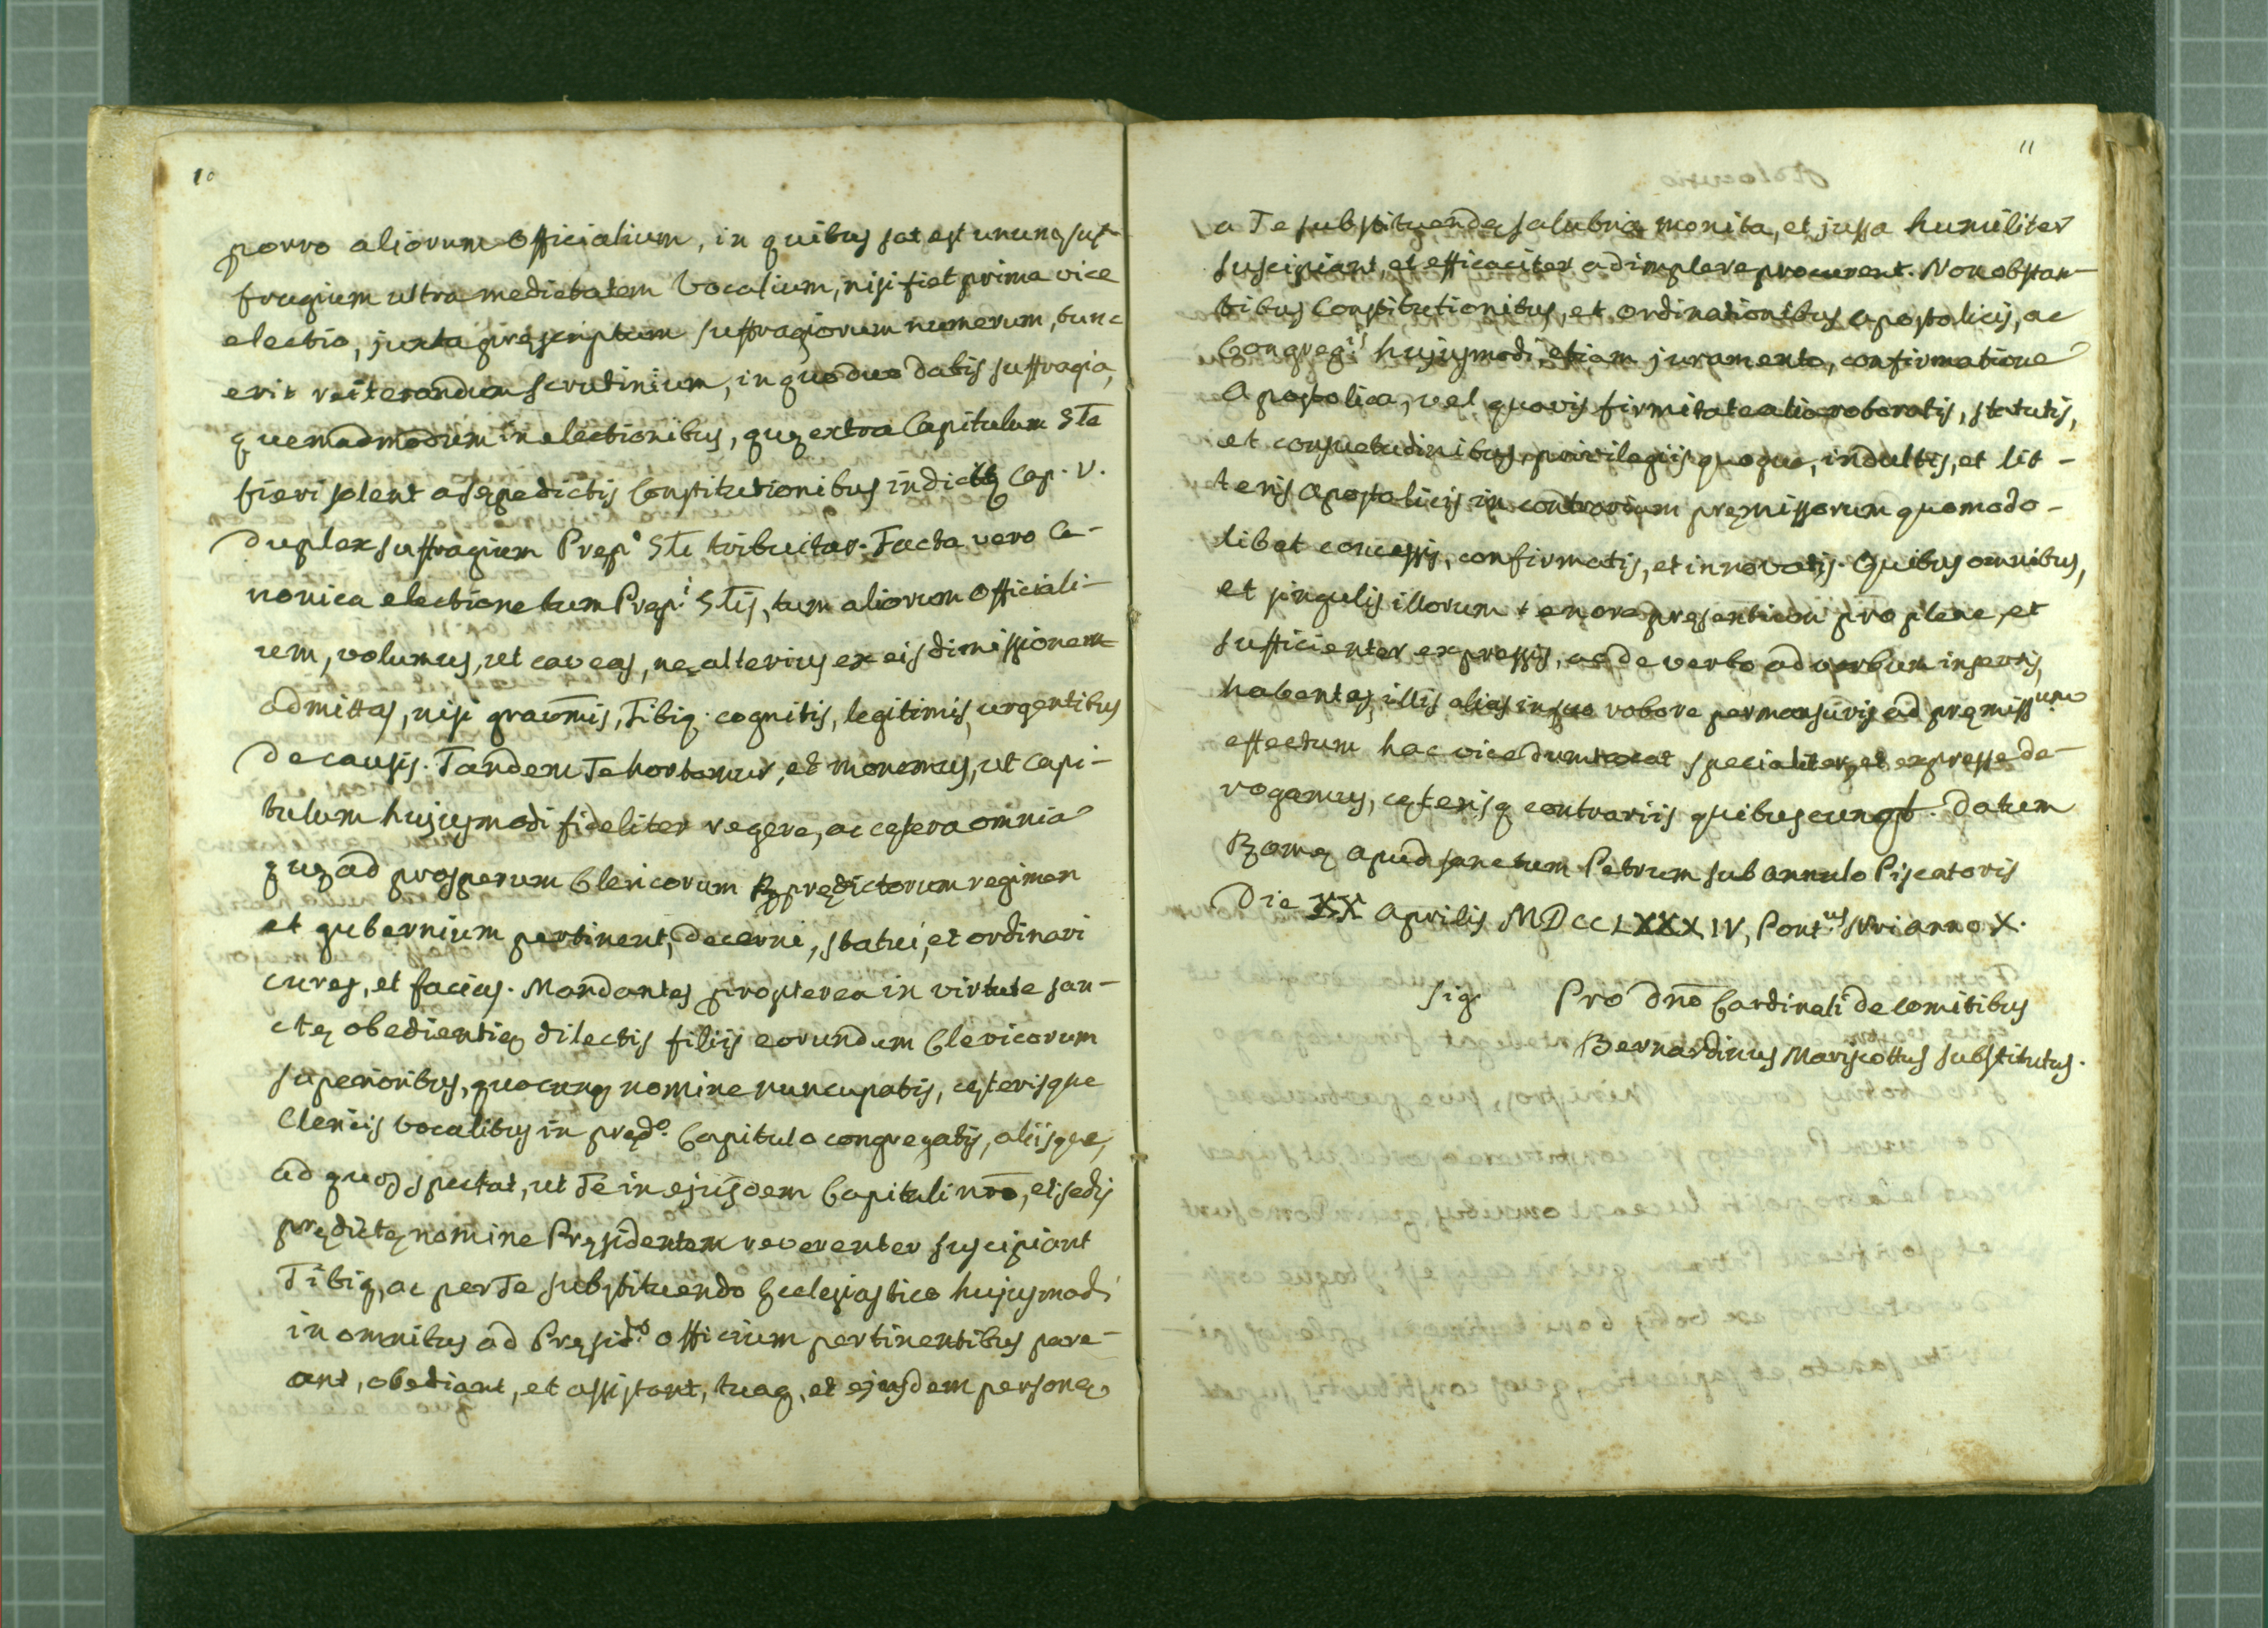 10
porro aliorum Officialium, in quibus sat est unum suf-
fragium ultra medietatem Vocalium, nisi fiet prima vice
electio, juxta pręscriptum suffragiorum numerum, tunc
erit reiterandum scrutinium, in quo duo datis suffragia,
quemadmodum in electionibus, quę extra Capitulum Gle
fieri solent a sępedictis Constitutionibus in dicto Cap. V.
duplex suffragium Pręp.o Gli tribuitur. Facta vero Ca-
nonica electione tum Pręp.i Glis, tum aliorum Officiali-
um, volumus, ut caveas, ne alterius ex eis dimissionem
admittas, nisi gravmis, Tibiq. cognitis, legitimis, urgentibus
de causis. Tandem Te hortamur, et monemus, ut Capi-
tulum hujusmodi fideliter regere, ac cetera omnia
quę ad prosperum Clericorum RR prędictorum regimen
et gubernium pertinent, decerni, statui, et ordinari
cures, et facias. Mandantes propterea in virtute san-
ctę obedientię dilectis filiis eorundem Clericorum
superioribus, quocunq nomine nuncupatis, cęterisque
Clericis vocalibus in pręd.o Capitulo congregatis, aliisque,
ad quos spectat, ut Te in ejusdem Capituli nrō, et sedis
prędictę nomine Pręsidentem reverenter suscipiant
Tibiq, ac per Te substituendo Ecclesiastico hujusmodi
in omnibus ad Pręsid.s officium pertinentibus pare-
ant, obediant, et assistant, tuaq, et ejusdem personę
11
a Te substituendę salubria monita, et jussa humiliter
suscipiant, et efficaciter adimplere procurent. Non obstan-
tibus Constitutionibus, et ordinationibus apostolicis, ac
Congreg.is hujusmodi, etiam juramento, confirmatione
Apostolica, vel quovis firmitate alia roboratis, statutis,
et consuetudinibus, privilegiis quoque, indultis, et lit-
teris apostolicis in contrarium pręmissorum quomodo-
libet concessis, confirmatis, et innovatis. Quibus omnibus,
et singulis illorum tenore pręsentium pro plene, et
sufficienter expressis, ac de verbo ad verbum insertis,
habentes, illis alias in suo robore permansuris ad pręmissum
effectum hac vice dumtaxat specialiter, et expresse de-
rogamus, cęterisq contrariis quibuscunq. Datum
Romę apud sanctum Petrum sub annulo Piscatoris
Die XX Aprilis MDCCLXXXIV, Pont.us Nri anno X.
Sig. Pro Dnō Cardinali de Comitibus
Bernardinus Mariscottus substitutus.